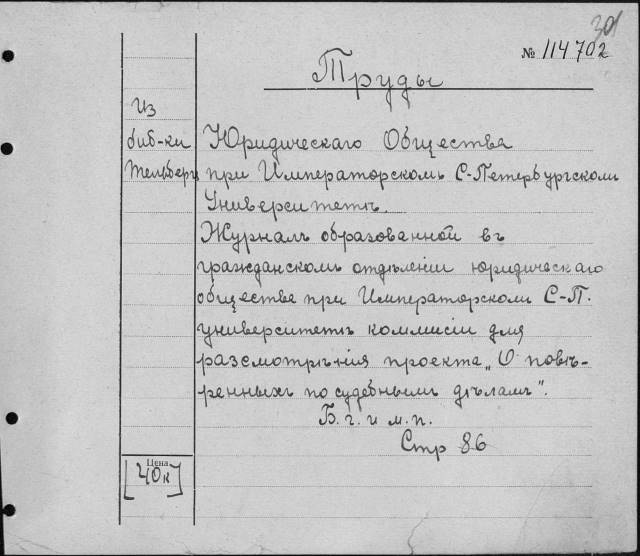 301
№ 114702
Труды
Из
биб-ки
Тельберг
Юридическаго Общества
при Императорскомъ С-Петербургскомъ
Университетѣ.
Журналъ образованной въ
гражданскомъ отдѣленіи юридическаго
общества при Императорскомъ С-П.
университетѣ коммисіи для
разсмотрѣнія проекта „О повѣ-
ренныхъ по судебнымъ дѣламъ".
Б. г. и м. п.
Стр 86
Цена
[40к]